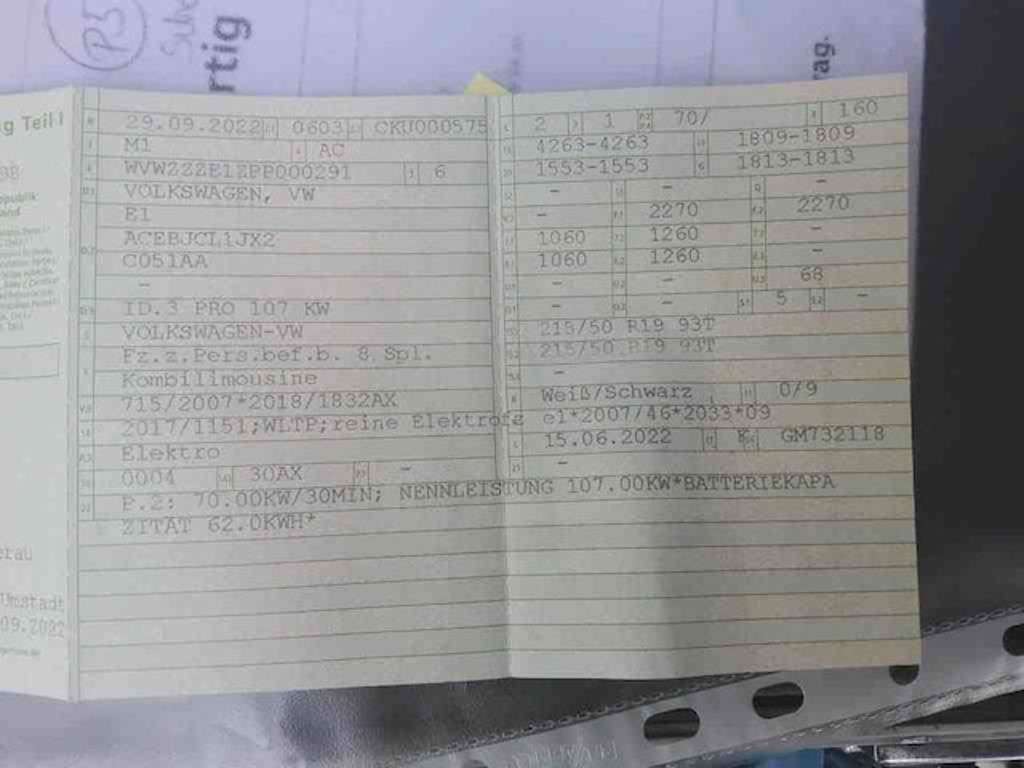 P5
rtig
rag.
g Teil I
29.09.2022 0603 CKU000575
M1 AC
WVWZZZE1ZPP000291 6
VOLKSWAGEN, VW
E1
ACEBJCL1JX2
C051AA
-
ID.3 PRO 107 KW
VOLKSWAGEN-VW
Fz.z.Pers.bef.b. 8 Spl.
Kombilimousine
715/2007*2018/1832AX
2017/1151;WLTP;reine Elektrofz
Elektro
0004 30AX -
P.2: 70.00KW/30MIN; NENNLEISTUNG 107.00KW*BATTERIEKAPA
ZITÄT 62.0KWH*
2 1 70/ 160
4263-4263 1809-1809
1553-1553 1813-1813
- - -
- 2270 2270
1060 1260 -
1060 1260 -
- - 68
- - 5 -
215/50 R19 93T
215/50 R19 93T
-
Weiß/Schwarz 0/9
e1*2007/46*2033*09
15.06.2022 K GM732118
-
erau
Umstadt
09.2022